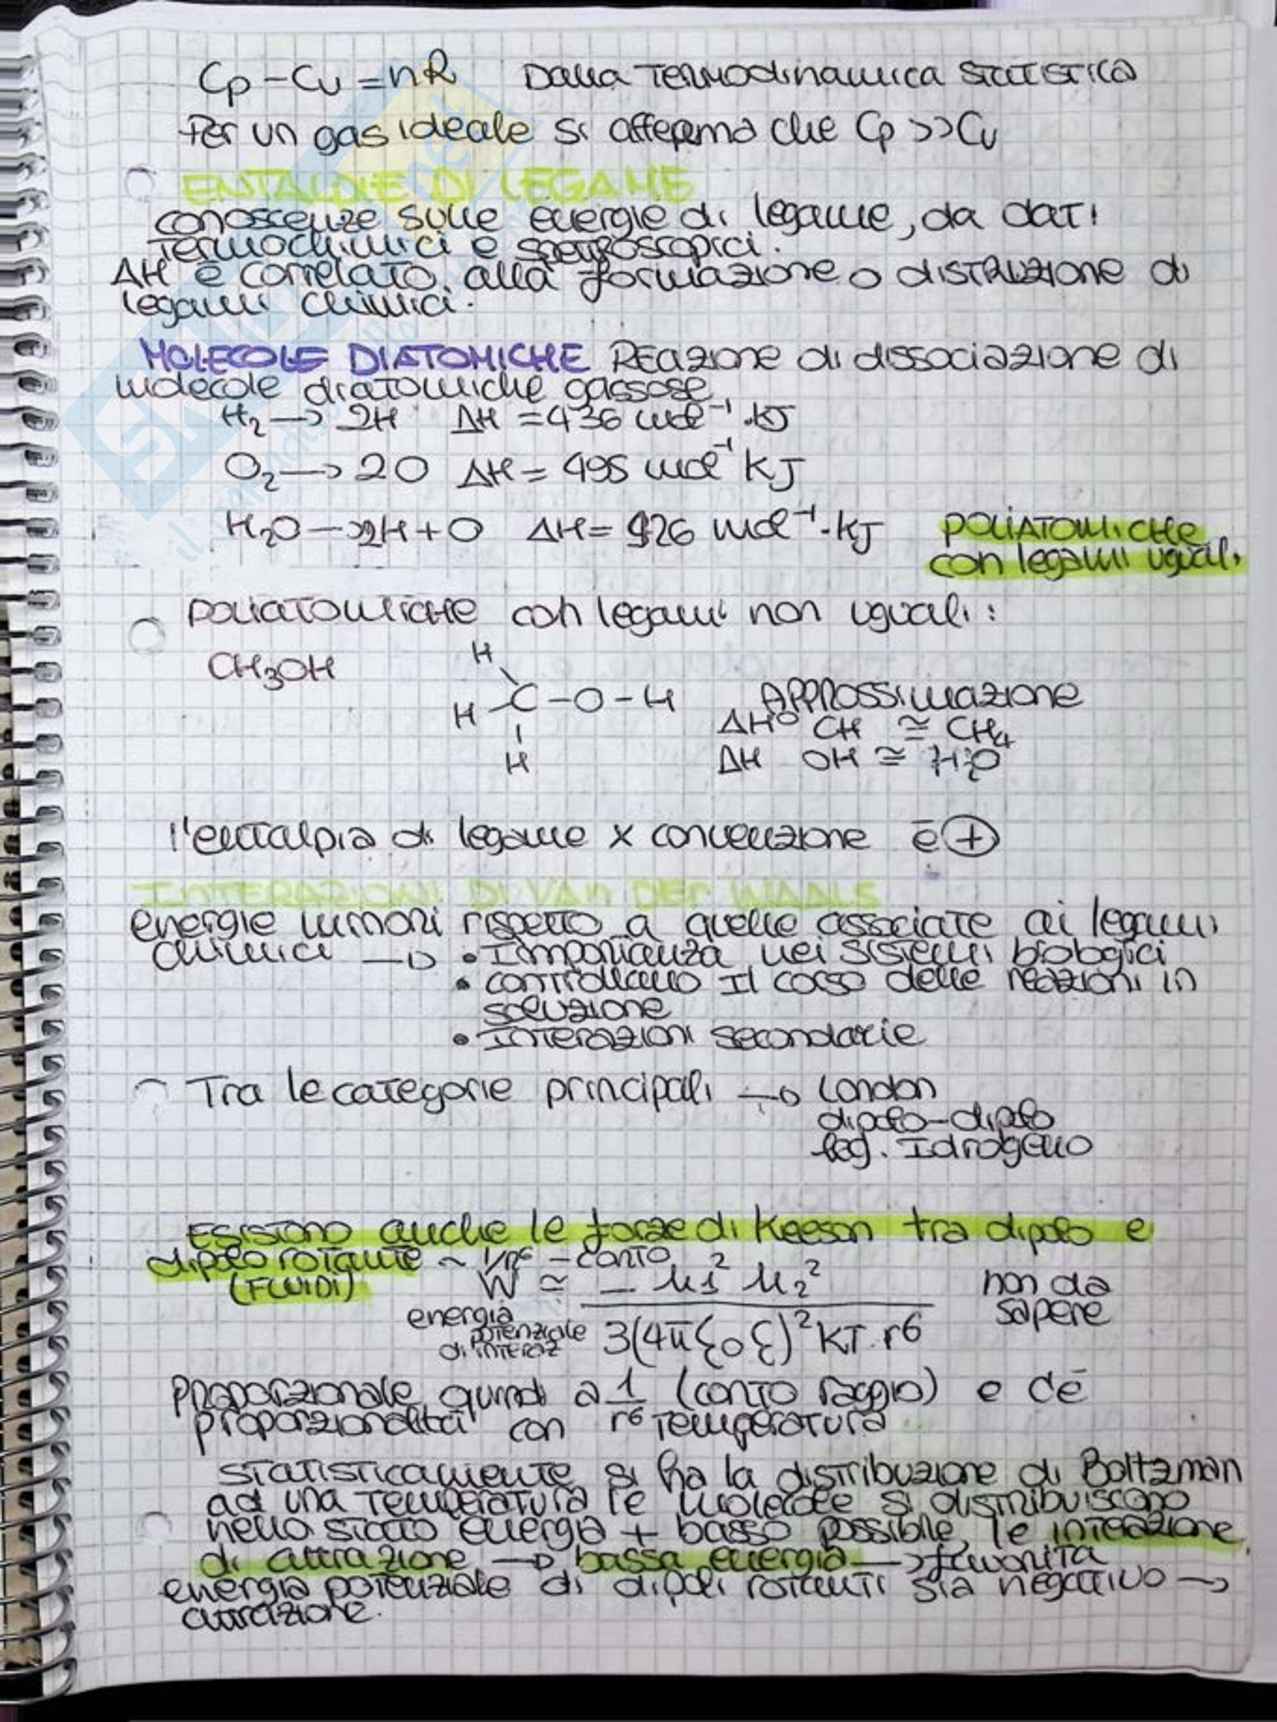 Cp - Cv = nR Dalla Termodinamica STATISTICA
Per un gas ideale si afferma che Cp >> Cv
ENTALPIE DI LEGAME
conoscenze sulle energie di legame, da dati
Termochimici e spettroscopici.
ΔH è correlato alla formazione o distruzione di
legami chimici.
MOLECOLE DIATOMICHE Reazione di dissociazione di
molecole diatomiche gassose
H2 → 2H ΔH = 436 mol⁻¹·KJ
O2 → 2O ΔH = 495 mol⁻¹ KJ
H2O → 2H + O ΔH = 926 mol⁻¹·KJ POLIATOMICHE
con legami uguali
POLIATOMICHE con legami non uguali:
CH3OH
H
H C - O - H
H
APPROSSIMAZIONE
ΔH° CH ≅ CH4
ΔH OH ≅ H2O
l'entalpia di legame x convenzione è +
INTERAZIONI DI VAN DER WAALS
energie minori rispetto a quelle associate ai legami
chimici → • Importanza nei sistemi biologici
• controllano il corso delle reazioni in
soluzione
• Interazioni secondarie
Tra le categorie principali → London
dipolo-dipolo
leg. Idrogeno
ESISTONO anche le forze di Keeson tra dipolo e
dipolo rotante ~ 1/r6 - conto
(FLUIDI) W ≃ - μ1² μ2² / 3(4π ξ0 ξ)² KT·r6 non da
sapere
energia
potenziale
di interaz
Proporzionale quindi a 1/r6 (conto raggio) e c'è
proporzionalità con Temperatura
STATISTICAMENTE si ha la distribuzione di Boltzman
ad una Temperatura le molecole si distribuiscono
nello stato energia + basso possibile, le interazione
di attrazione → bassa energia → favorita
energia potenziale di dipoli rotanti sia negativo →
attrazione.